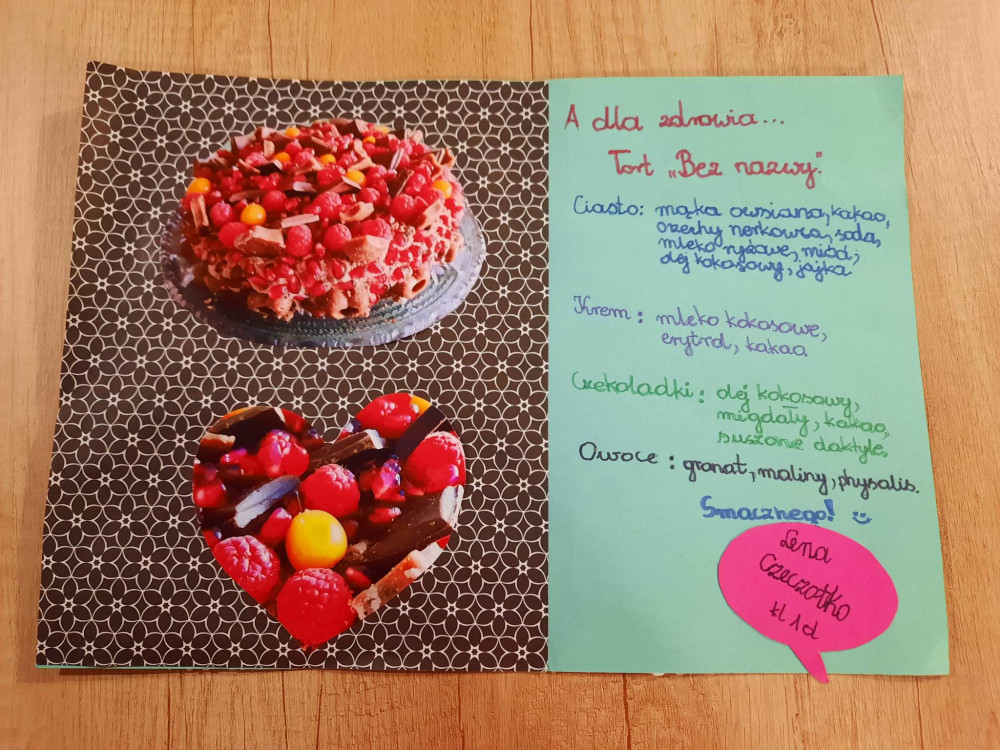 A dla zdrowia...
Tort „Bez nazwy".
Ciasto: mąka owsiana, kakao,
orzechy nerkowca, soda,
mleko ryżowe, miód,
olej kokosowy, jajka
Krem: mleko kokosowe,
erytrol, kakao
Czekoladki: olej kokosowy,
migdały, kakao,
suszone daktyle,
Owoce: granat, maliny, physalis.
Smacznego!
Lena
Czeczotko
kl 1d